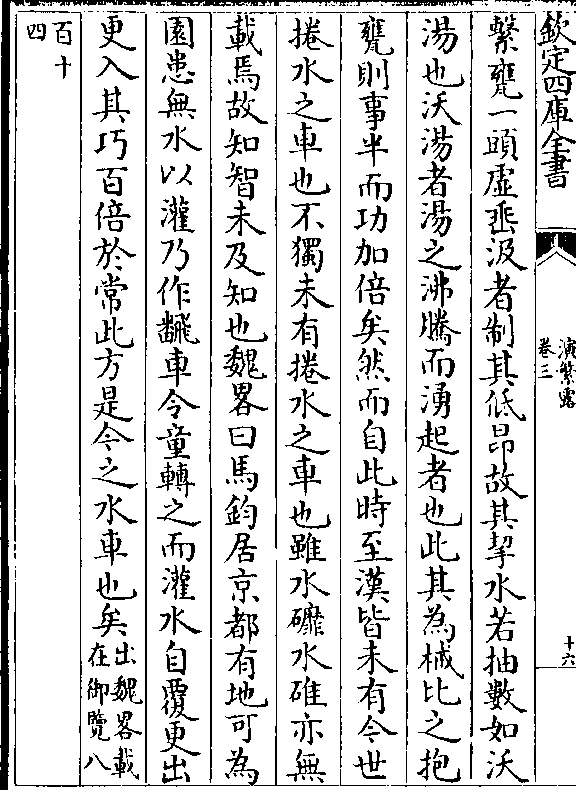 欽定四庫全書
演繁露
卷三
十六
繫甕一頭虛垂汲者制其低昂故其挈水若抽數如沃
湯也沃湯者湯之沸騰而湧起者也此其為械比之抱
甕則事半而功加倍矣然而自此時至漢皆未有令世
捲水之車也不獨未有捲水之車也雖水磨水碓亦無
載焉故知智未及知也魏畧曰馬鈞居京都有地可為
園患無水以灌乃作翻車令童轉之而灌水自覆更出
更入其巧百倍於常此方是今之水車也矣出魏畧載
在御覽八
百十
四